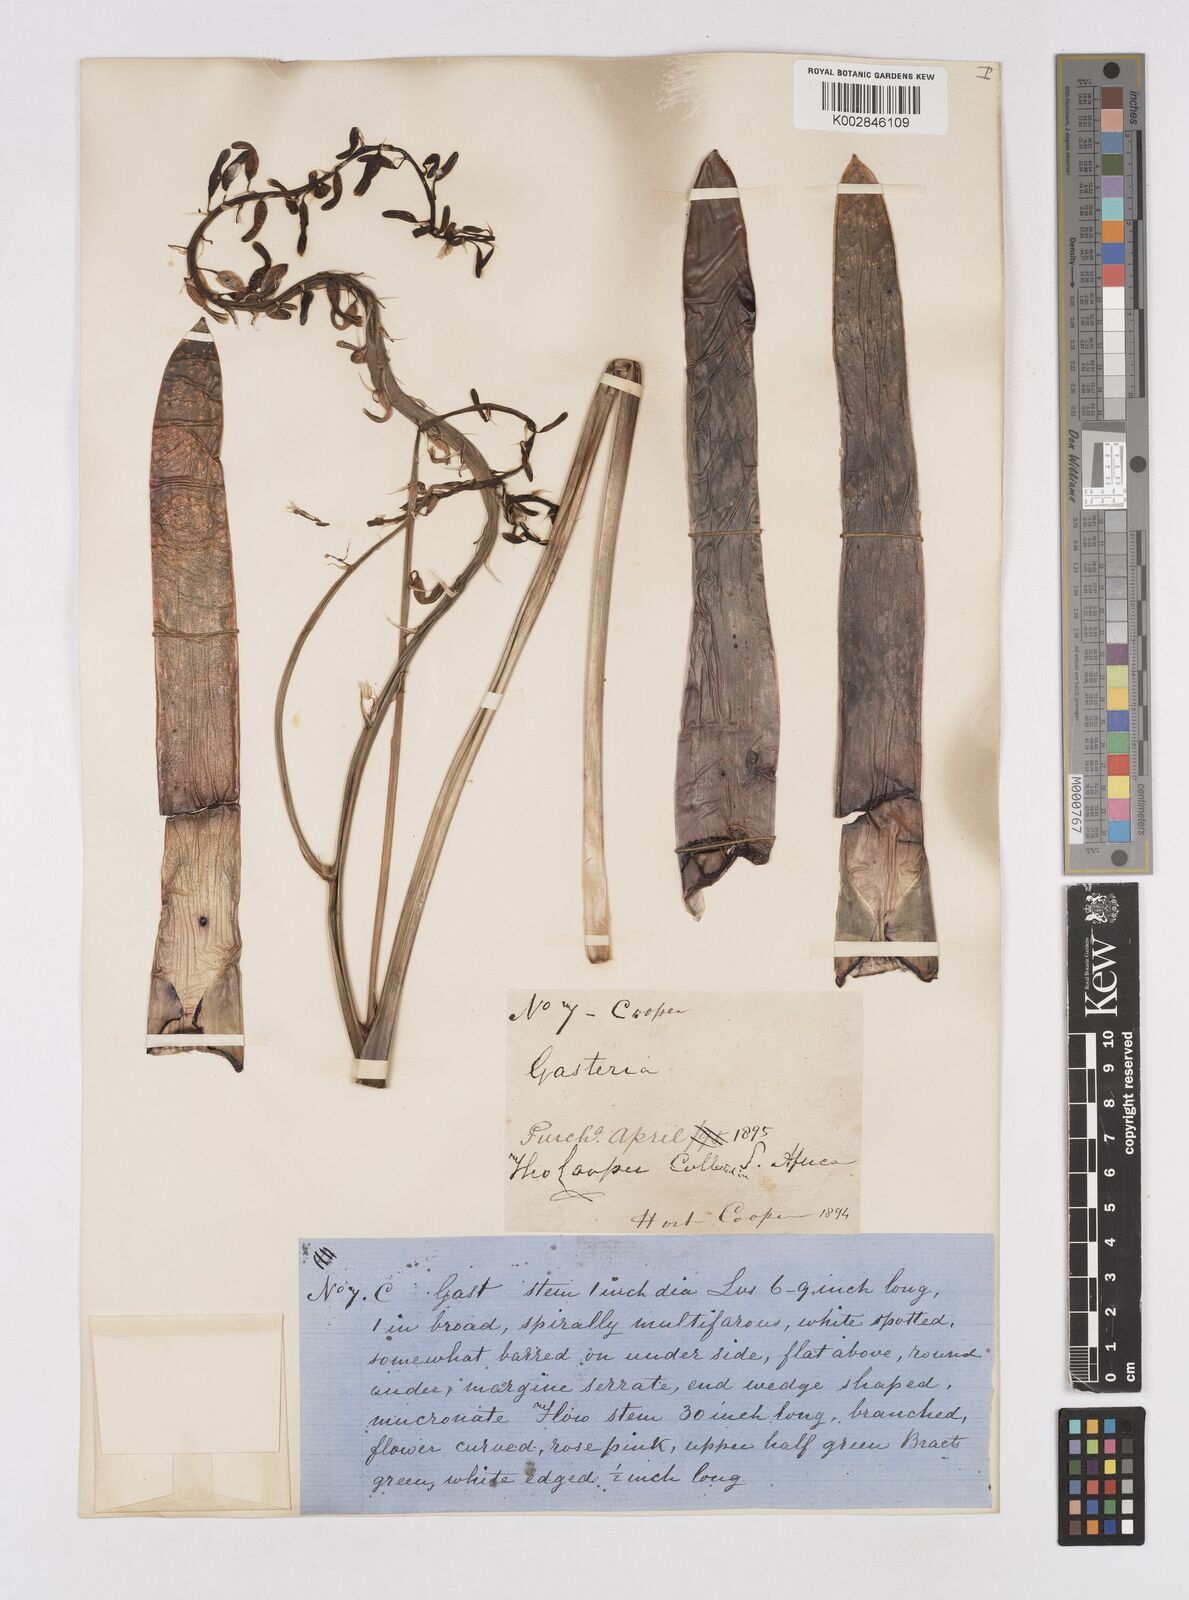 ROYAL BOTANIC GARDENS KEW
K002846109
I
No 7 - Cooper
Gasteria
Purchd. April 1895
Tho Cooper Collected in S. Africa
Hort Cooper 1894
No 7. C Gast stem 1 inch dia Lvs 6-9 inch long,
1 in broad, spirally multifarous, white spotted,
somewhat barred on under side, flat above, round
under, margine serrate, end wedge shaped,
mucronate Flow stem 30 inch long, branched,
flower curved, rose pink, upper half green Bract
green, white edged ½ inch long
inches
Density
Don Williams
centimeters
M000767
Royal Botanic Gardens
Kew
copyright reserved
0 1 2 3 4 5 6 7 8 9 10
cm